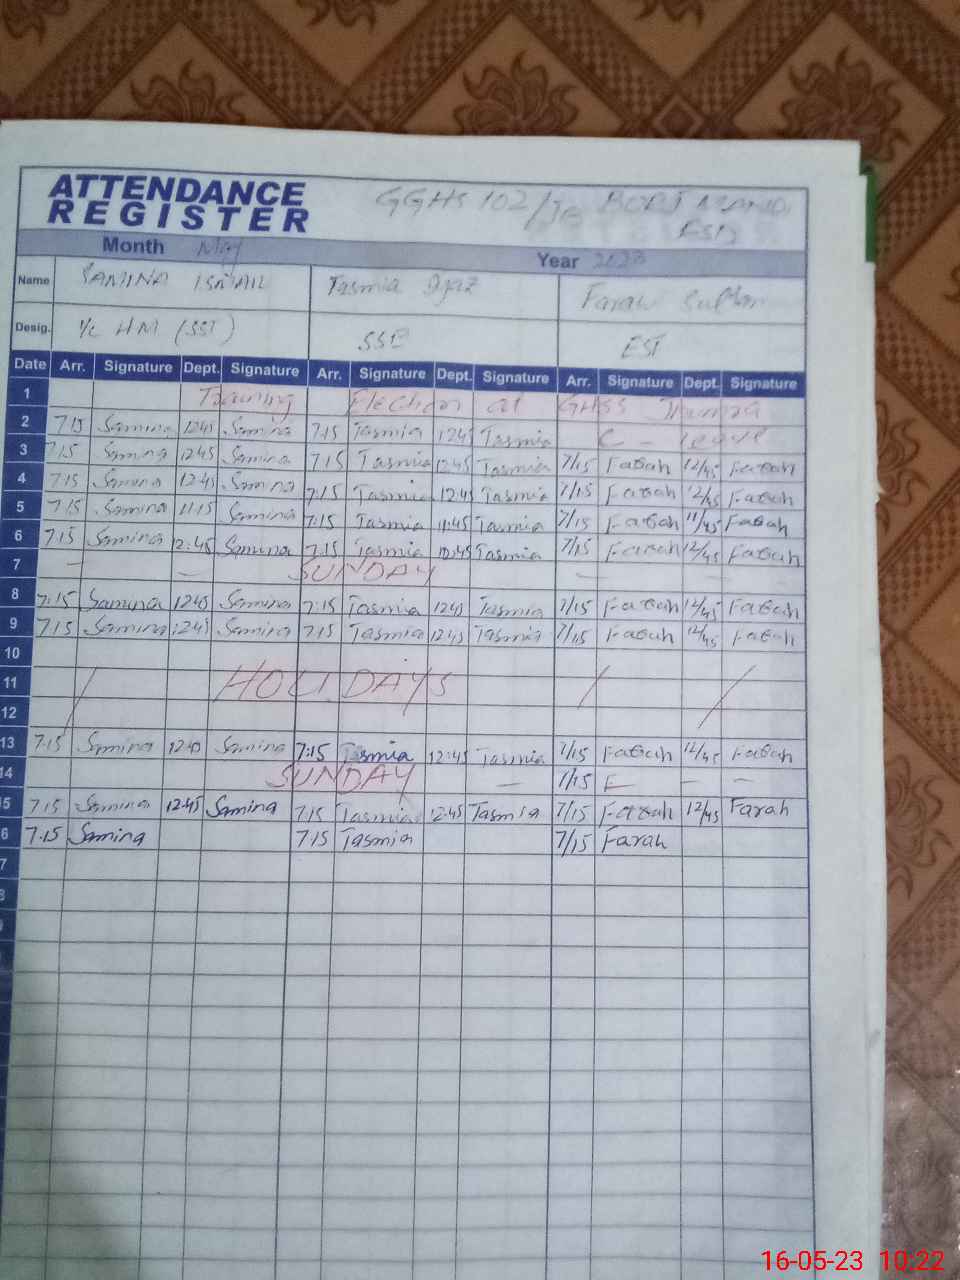 ATTENDANCE GGHS 102/JB BURJ MANDI
REGISTER FSD
Month May Year 2023
Name SAMINA ISMAIL Tasmia Ijaz Farah Sultan
Desig. I/C HM (SST) SSE EST
Date Arr. Signature Dept. Signature Arr. Signature Dept. Signature Arr. Signature Dept. Signature
1 Training Election at GHSS
2 7:15 Samina 12:45 Samina 7:15 Tasmia 12:45 Tasmia C - leave
3 7:15 Samina 12:45 Samina 7:15 Tasmia 12:45 Tasmia 7/15 Farah 12/45 Farah
4 7:15 Samina 12:45 Samina 7:15 Tasmia 12:45 Tasmia 7/15 Farah 12/45 Farah
5 7:15 Samina 11:15 Samina 7:15 Tasmia 11:45 Tasmia 7/15 Farah 11/45 Farah
6 7:15 Samina 12:45 Samina 7:15 Tasmia Tasmia 7/15 Farah 12/45 Farah
7 — — SUNDAY — — —
8 7:15 Samina 12:45 Samina 7:15 Tasmia 12:45 Tasmia 7/15 Farah 12/45 Farah
9 7:15 Samina 12:45 Samina 7:15 Tasmia 12:45 Tasmia 7/15 Farah 12/45 Farah
10
11 / HOLIDAYS / /
12
13 7:15 Samina Samina 7:15 Tasmia 12:45 Tasmia 7/15 Farah 12/45 Farah
14 SUNDAY — 7/15 F — —
5 7:15 Samina 12:45 Samina 7:15 Tasmia 12:45 Tasmia 7/15 Farah 12/45 Farah
6 7:15 Samina 7:15 Tasmia 7/15 Farah
7
8
16-05-23 10:22